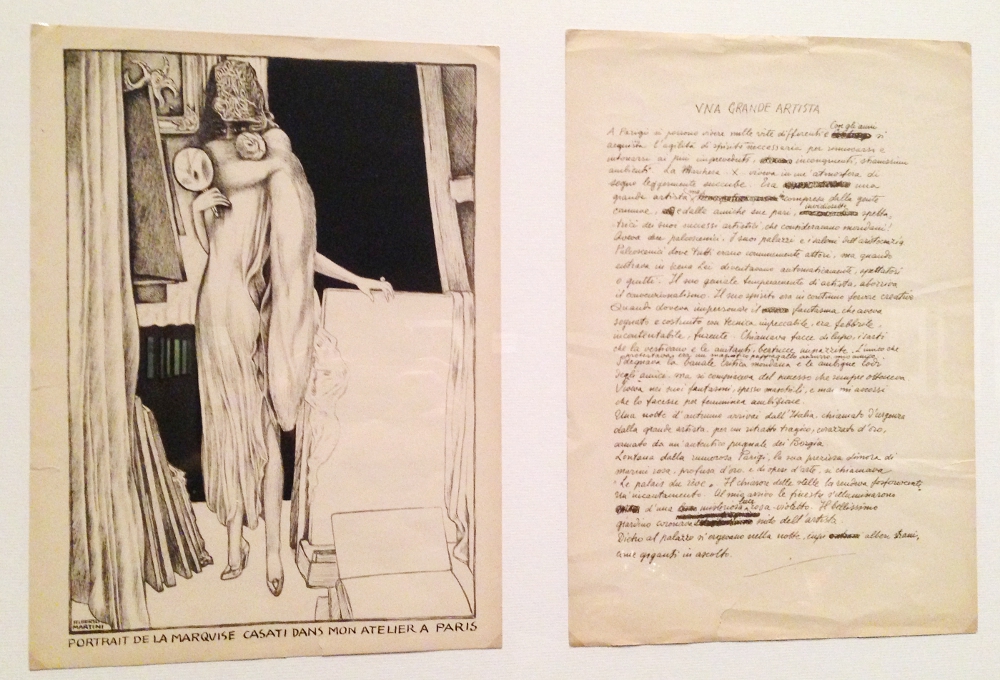 ALBERTO
MARTINI
PORTRAIT DE LA MARQVISE CASATI DANS MON ATELIER A PARIS
VNA GRANDE ARTISTA
Con gli anni
A Parigi si possono vivere mille vite differenti e si
acquista l'agilità di spirito necessaria per rinnovarsi e
intonarsi ai più impreveduti, incongruenti, stranissimi
ambienti. La X viveva in un'atmosfera di
sogno leggermente succube. Era una
grande artista, compresa dalla gente
comune, e dalle amiche sue pari, spetta-
trici dei suoi successi artistici che consideravano mondani!
Aveva due palcoscenici. I suoi palazzi e i saloni dell'aristocrazia.
Palcoscenici dove tutti erano comunemente attori, ma quando
entrava in scena Lei diventavano automaticamente, spettatori
e quinte. Il suo geniale temperamento di artista, aborriva
il convenzionalismo. Il suo spirito era in continuo fervore creativo
Quando doveva impersonare il fantasma, che aveva
sognato e costruito con tecnica impeccabile, era febbrile,
incontentabile, furente. Chiamava facce di lupo, i sarti
che la vestivano e le aiutanti, bertucce imparrate. L'unico che

Sdegnava la banale critica mondana e le ambigue lodi
degli amici, ma si compiaceva del successo che sempre otteneva
Viveva nei suoi fantasmi, spesso maschili, e mai mi accorsi
che lo facesse per femminea ambizione.
Una notte d'autunno arrivai dall'Italia, chiamato d'urgenza
dalla grande artista, per un ritratto tragico, corazzato d'oro,
armato da un autentico pugnale dei Borgia.
Lontana dalla rumorosa Parigi, la sua preziosa dimora di
marmi rosa, profusa d'oro, e di opere d'arte, si chiamava
"Le palais du rêve". Il chiarore delle stelle la rendeva fosforescente,
Un incantamento. Al mio arrivo le finestre s'illuminarono
d'una misteriosa luce rosa-violetto. Il bellissimo
giardino coronava dell'artista.
Dietro al palazzo si ergevano nella notte, cupi alberi strani,
come giganti in ascolto.